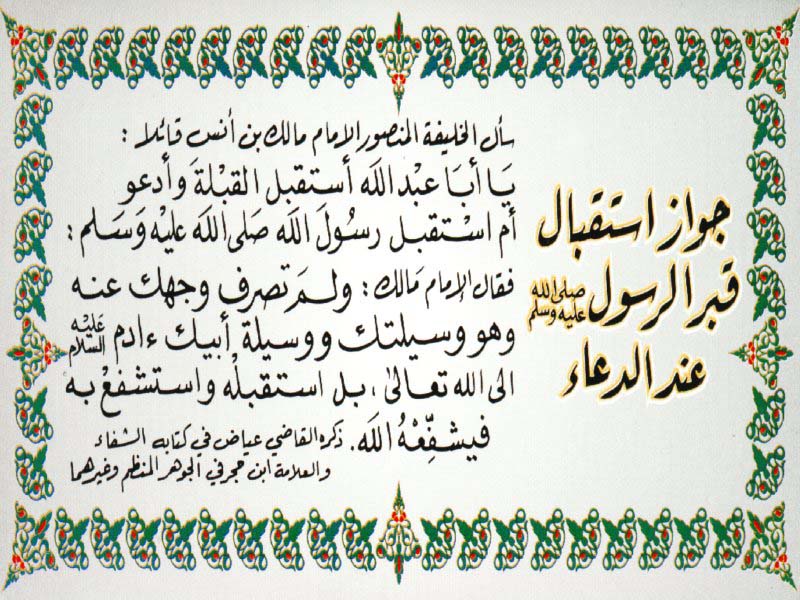 جواز استقبال
قبر الرسول صلى الله عليه وسلم
عند الدعاء
سأل الخليفة المنصور الإمام مالك بن أنس قائلا :
يَا أبَا عبْد الله أستقبل القبْلةَ وأدعو
أم اسْتقبل رسُولَ الله صَلى الله عليْه وَسَلم :
فقال الإمام مَالك : ولمَ تصرف وجهك عنه
وهو وسيلتك ووسيلة أبيك ءادم عَليْه السلام
الى الله تعالىٰ ، بل استقبلْه واستشفعْ به
فيشفِّعْهُ الله. ذكره القاضي عياض في كتابه الشفاء
والعلامة ابن حجر في الجوهر المنظم وغيرهما